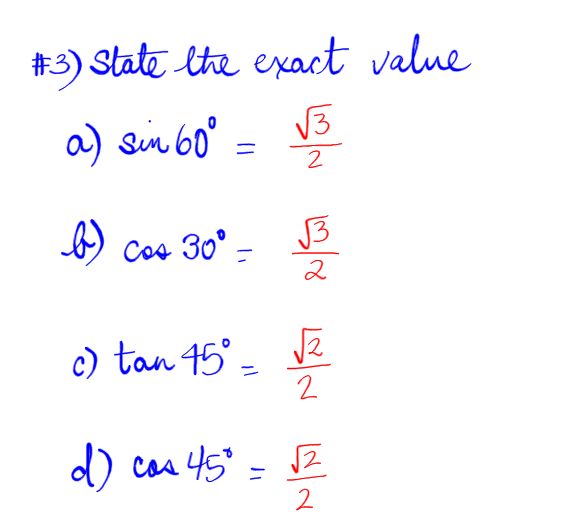 #3) State the exact value
a) sin 60° = √3/2
b) cos 30° = √3/2
c) tan 45° = √2/2
d) cos 45° = √2/2